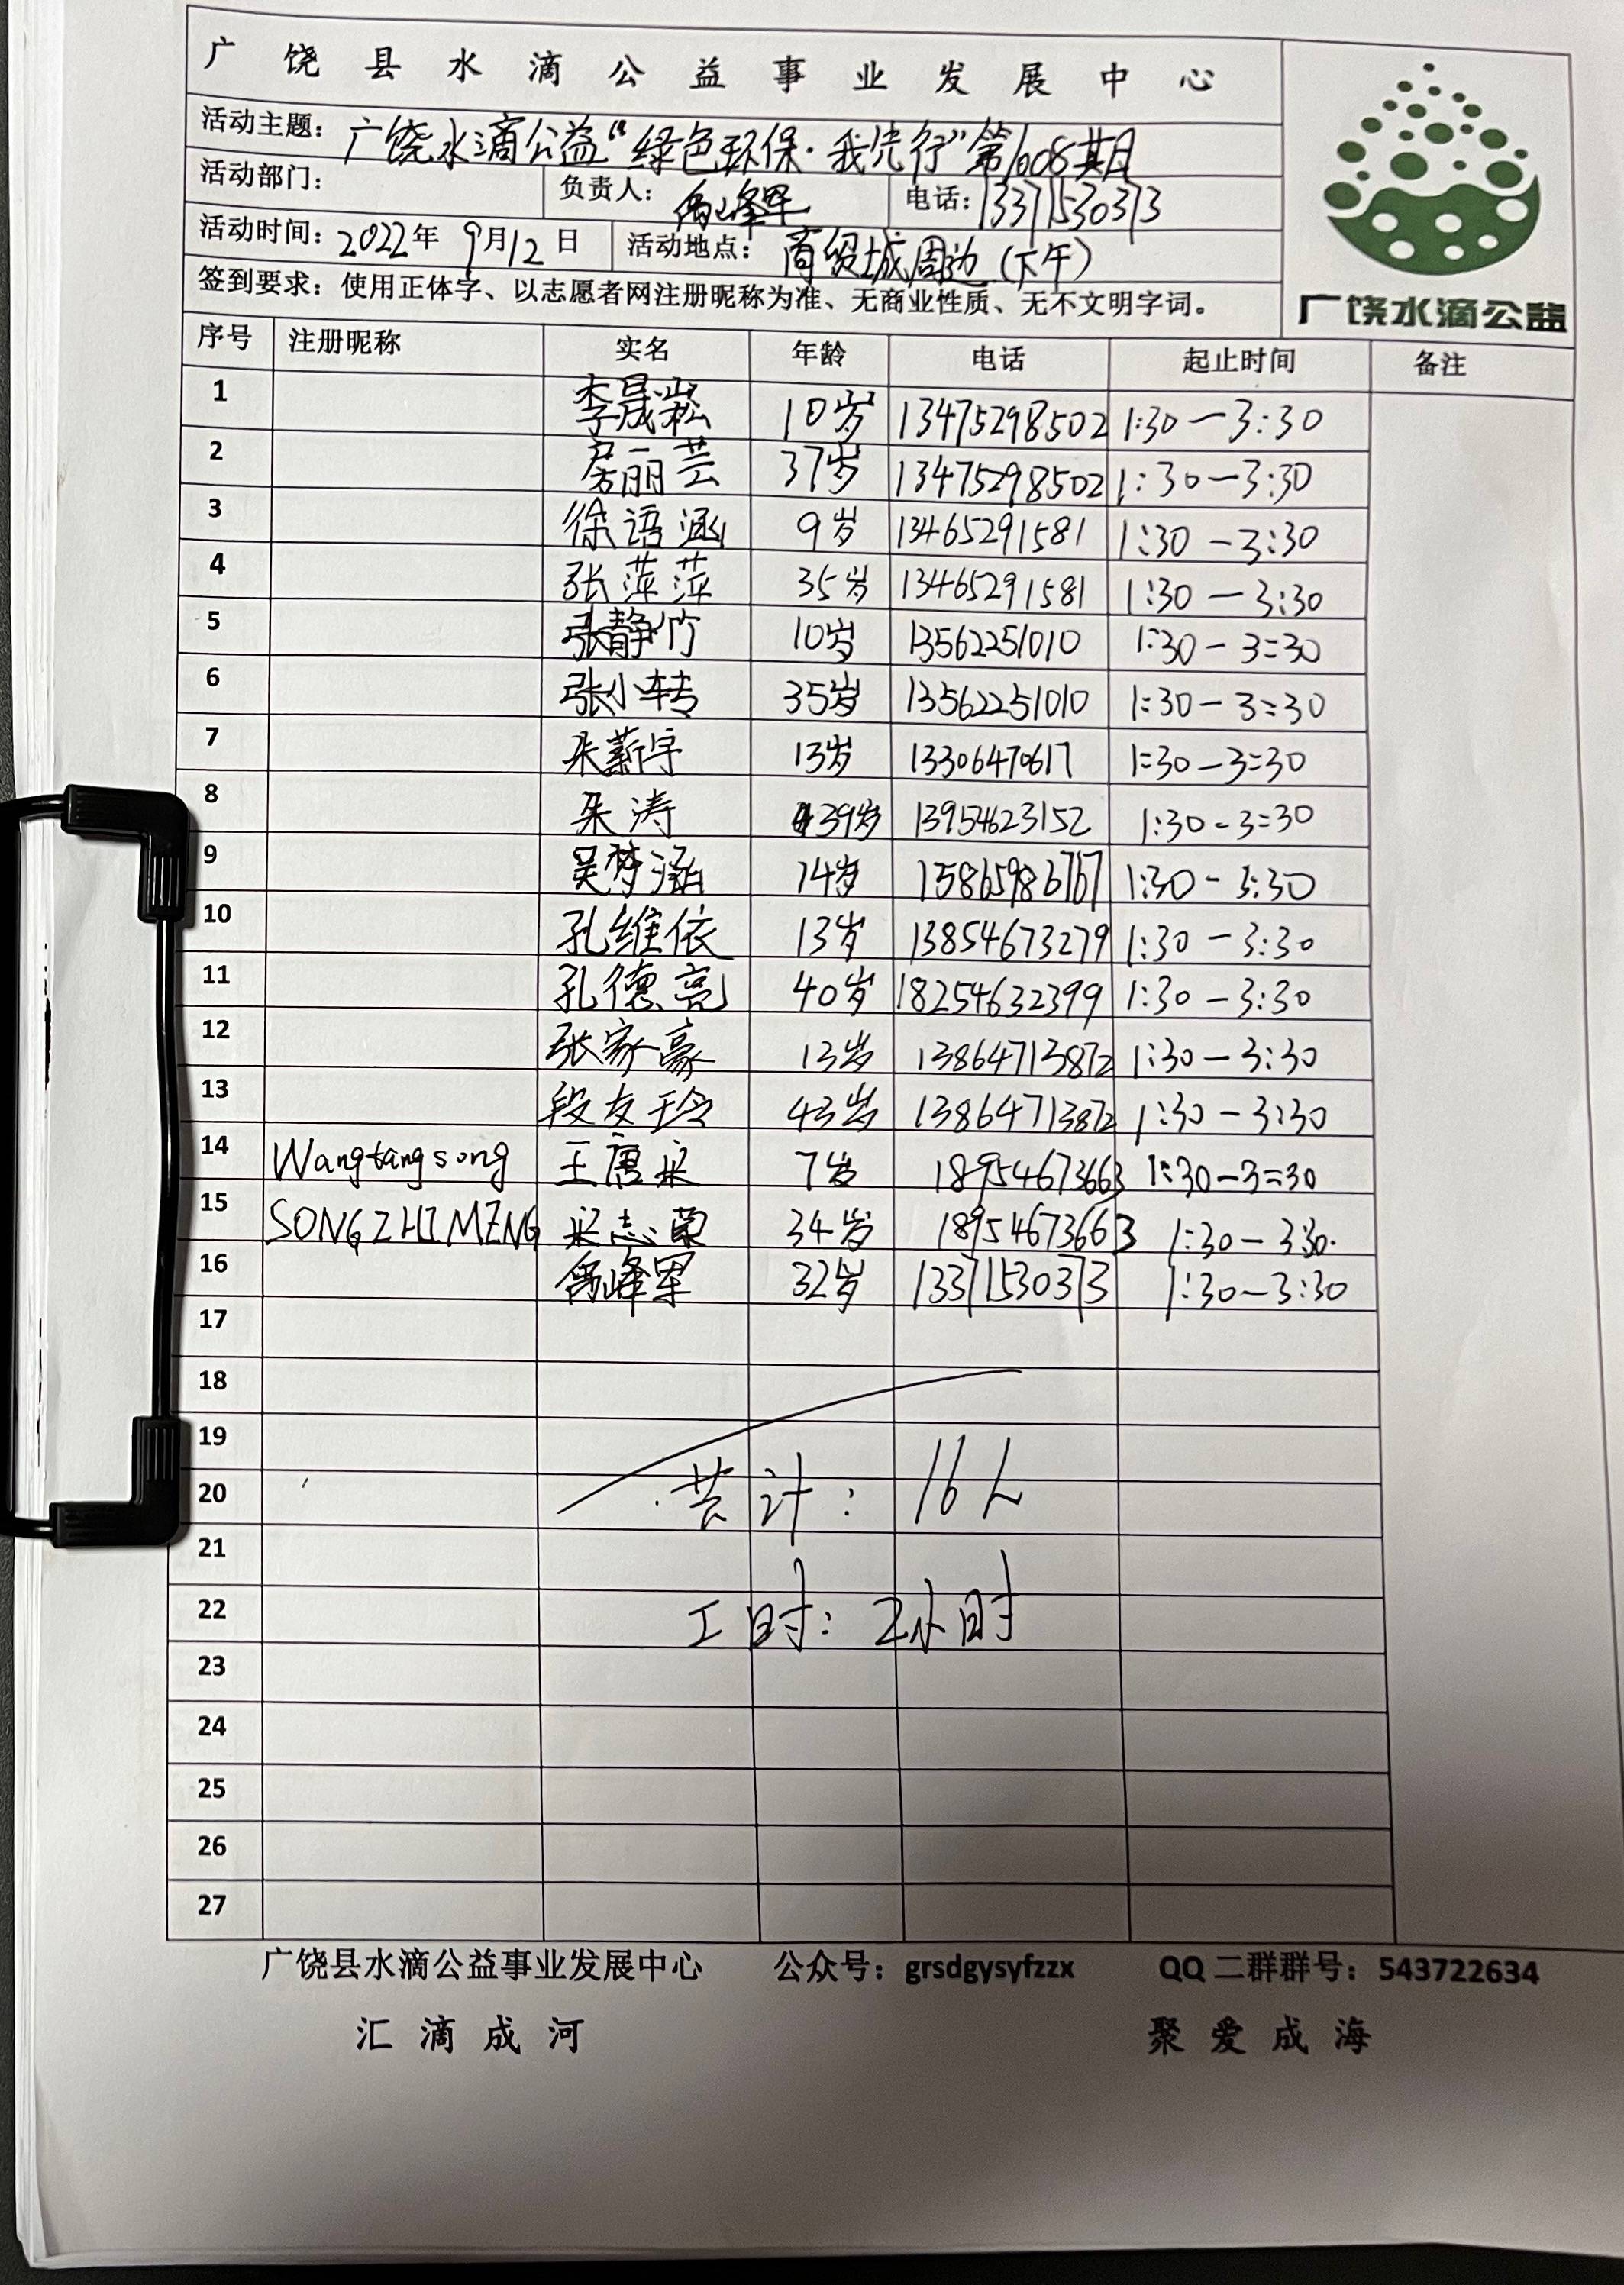 广饶县水滴公益事业发展中心
活动主题：广饶水滴公益“绿色环保·我先行”第1608期
活动部门： 负责人：禹峰军 电话：13371530373
活动时间：2022年9月12日 活动地点：商贸城周边（下午）
签到要求：使用正体字、以志愿者网注册昵称为准、无商业性质、无不文明字词。
广饶水滴公益
序号 注册昵称 实名 年龄 电话 起止时间 备注
1 李晟淞 10岁 13475298502 1:30—3:30
2 房丽芸 37岁 13475298502 1:30—3:30
3 徐语涵 9岁 13465291581 1:30—3:30
4 张萍萍 35岁 13465291581 1:30—3:30
5 张静竹 10岁 13562251010 1:30—3:30
6 张小转 35岁 13562251010 1:30—3:30
7 朱薪宇 13岁 13306470617 1:30—3:30
8 朱涛 39岁 13954623152 1:30-3:30
9 吴梦涵 14岁 15865986767 1:30-3:30
10 孔维依 13岁 13854673279 1:30—3:30
11 孔德亮 40岁 18254632399 1:30—3:30
12 张家豪 13岁 13864713872 1:30—3:30
13 段友玲 43岁 13864713872 1:30—3:30
14 Wangtangsong 王唐宋 7岁 18954673663 1:30—3:30
15 SONGZHIMENG 宋志 34岁 18954673663 1:30—3:30.
16 禹峰军 32岁 13371530373 1:30—3:30
17
18
19
20 共计：16人
21
22 工时：2小时
23
24
25
26
27
广饶县水滴公益事业发展中心 公众号：grsdgysyfzzx QQ二群群号：543722634
汇滴成河 聚爱成海